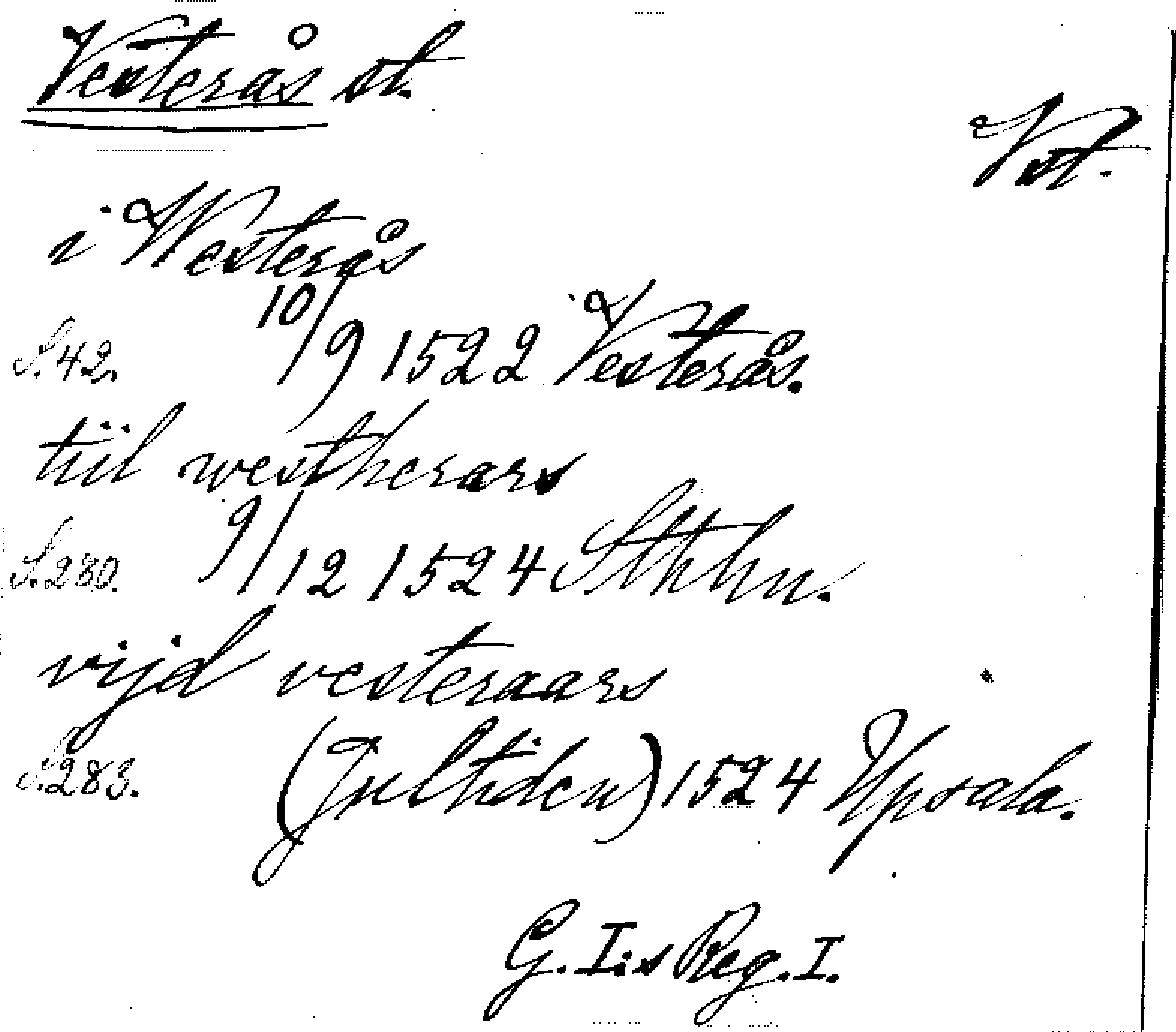 Vesterås st.
Vst.
i Westerås
S. 42. 10/9 1522 Vesterås.
tiil westherars
S. 280. 9/12 1524 Sthlm.
vijd vesteraars
S. 283. (Jultiden) 1524 Upsala.
G. I:s Reg. I.